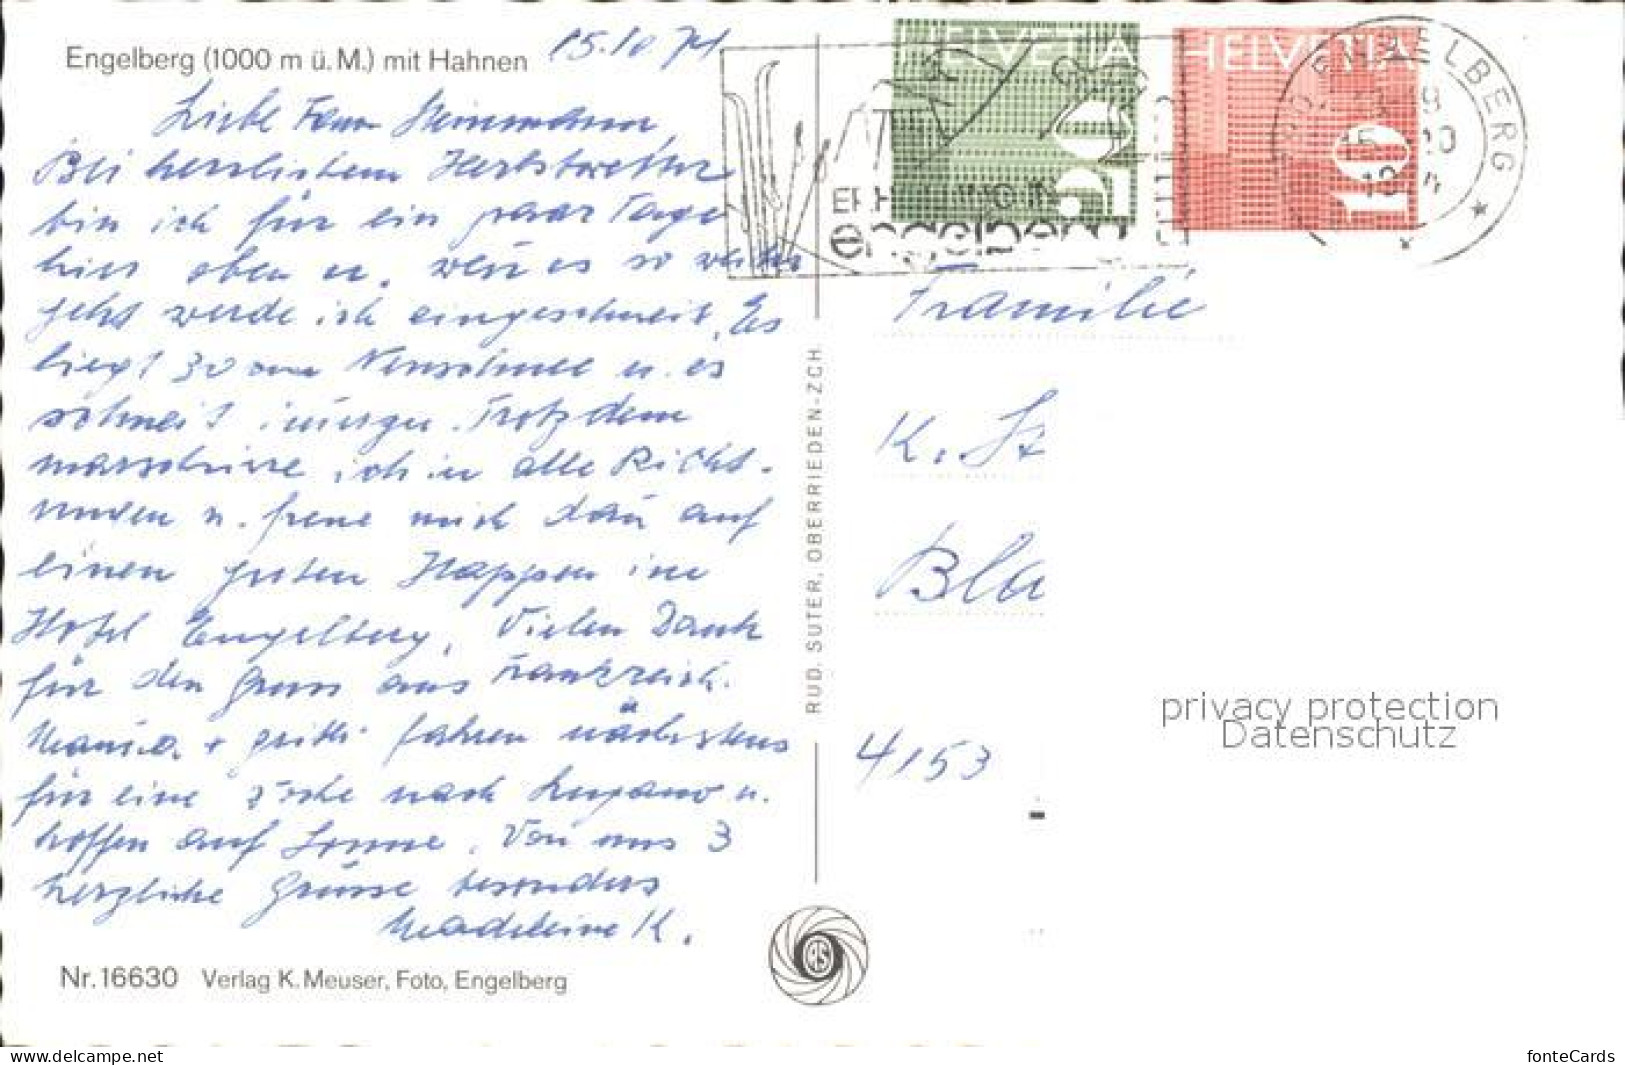 Engelberg (1000 m ü. M.) mit Hahnen
15.10 74
Liebe Fam
Bei herrlichem Herbstwetter
bin ich für ein paar Tage
hier oben u. wen es so weiter
geht werde ich eingeschneit. Es
liegt 30 cm Neuschnee u. es
schneit immer. Trotzdem
marschiere ich in alle Richt-
ungen u. freue mich dan auf
einen guten Happen im
Hotel Engelberg. Vielen Dank
für den Gruss aus Frankreich.
+ fahren nächstens
für eine Woche nach Lugano u.
hoffen auf Sonne. Von uns 3
herzliche Grüsse besonders
Madeleine K.
Nr. 16630 Verlag K. Meuser, Foto, Engelberg
RUD. SUTER, OBERRIEDEN-ZCH
HELVETIA
20
HELVETIA
10
ENGELBERG
engelberg
Familie
K. St
Bla
4153
privacy protection
Datenschutz
www.delcampe.net
fonteCards